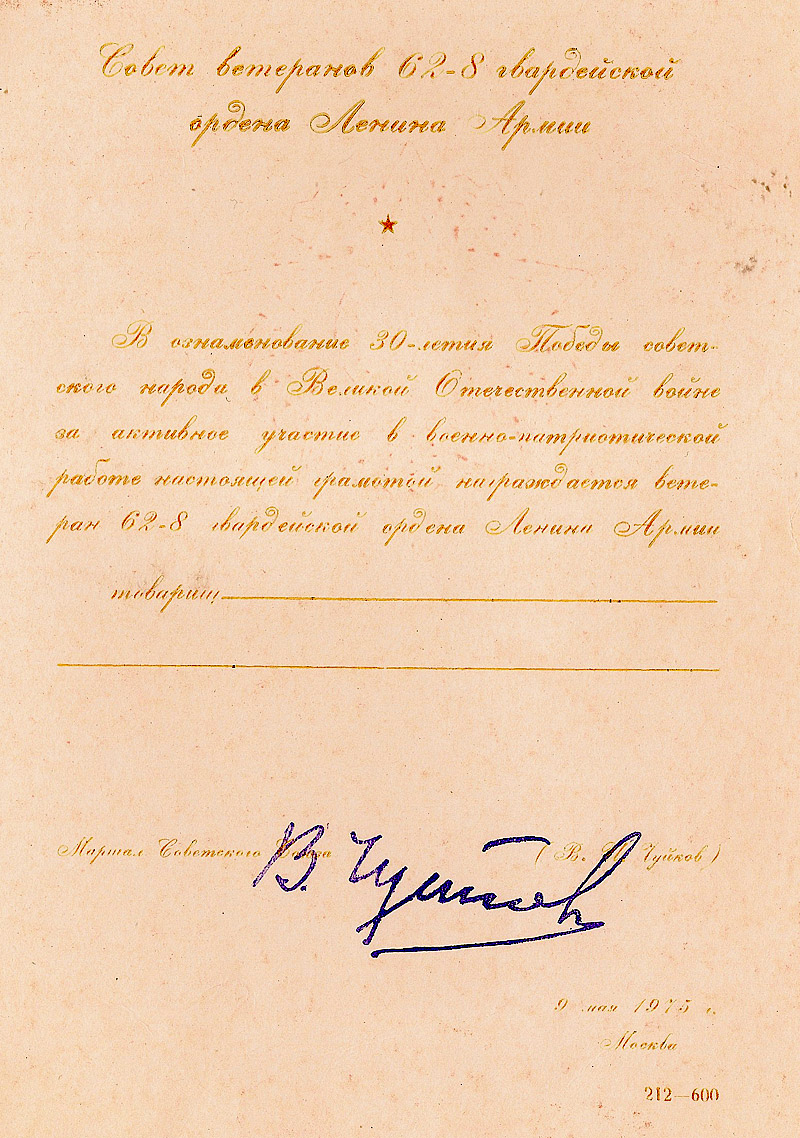 Совет ветеранов 62-8 гвардейской
ордена Ленина Армии
В ознаменование 30-летия Победы совет-
ского народа в Великой Отечественной войне
за активное участие в военно-патриотической
работе настоящей грамотой награждается вете-
ран 62-8 гвардейской ордена Ленина Армии
товарищ
Маршал Советского Союза (В. И. Чуйков)
В. Чуйков
9 мая 1975 г.
Москва
212—600